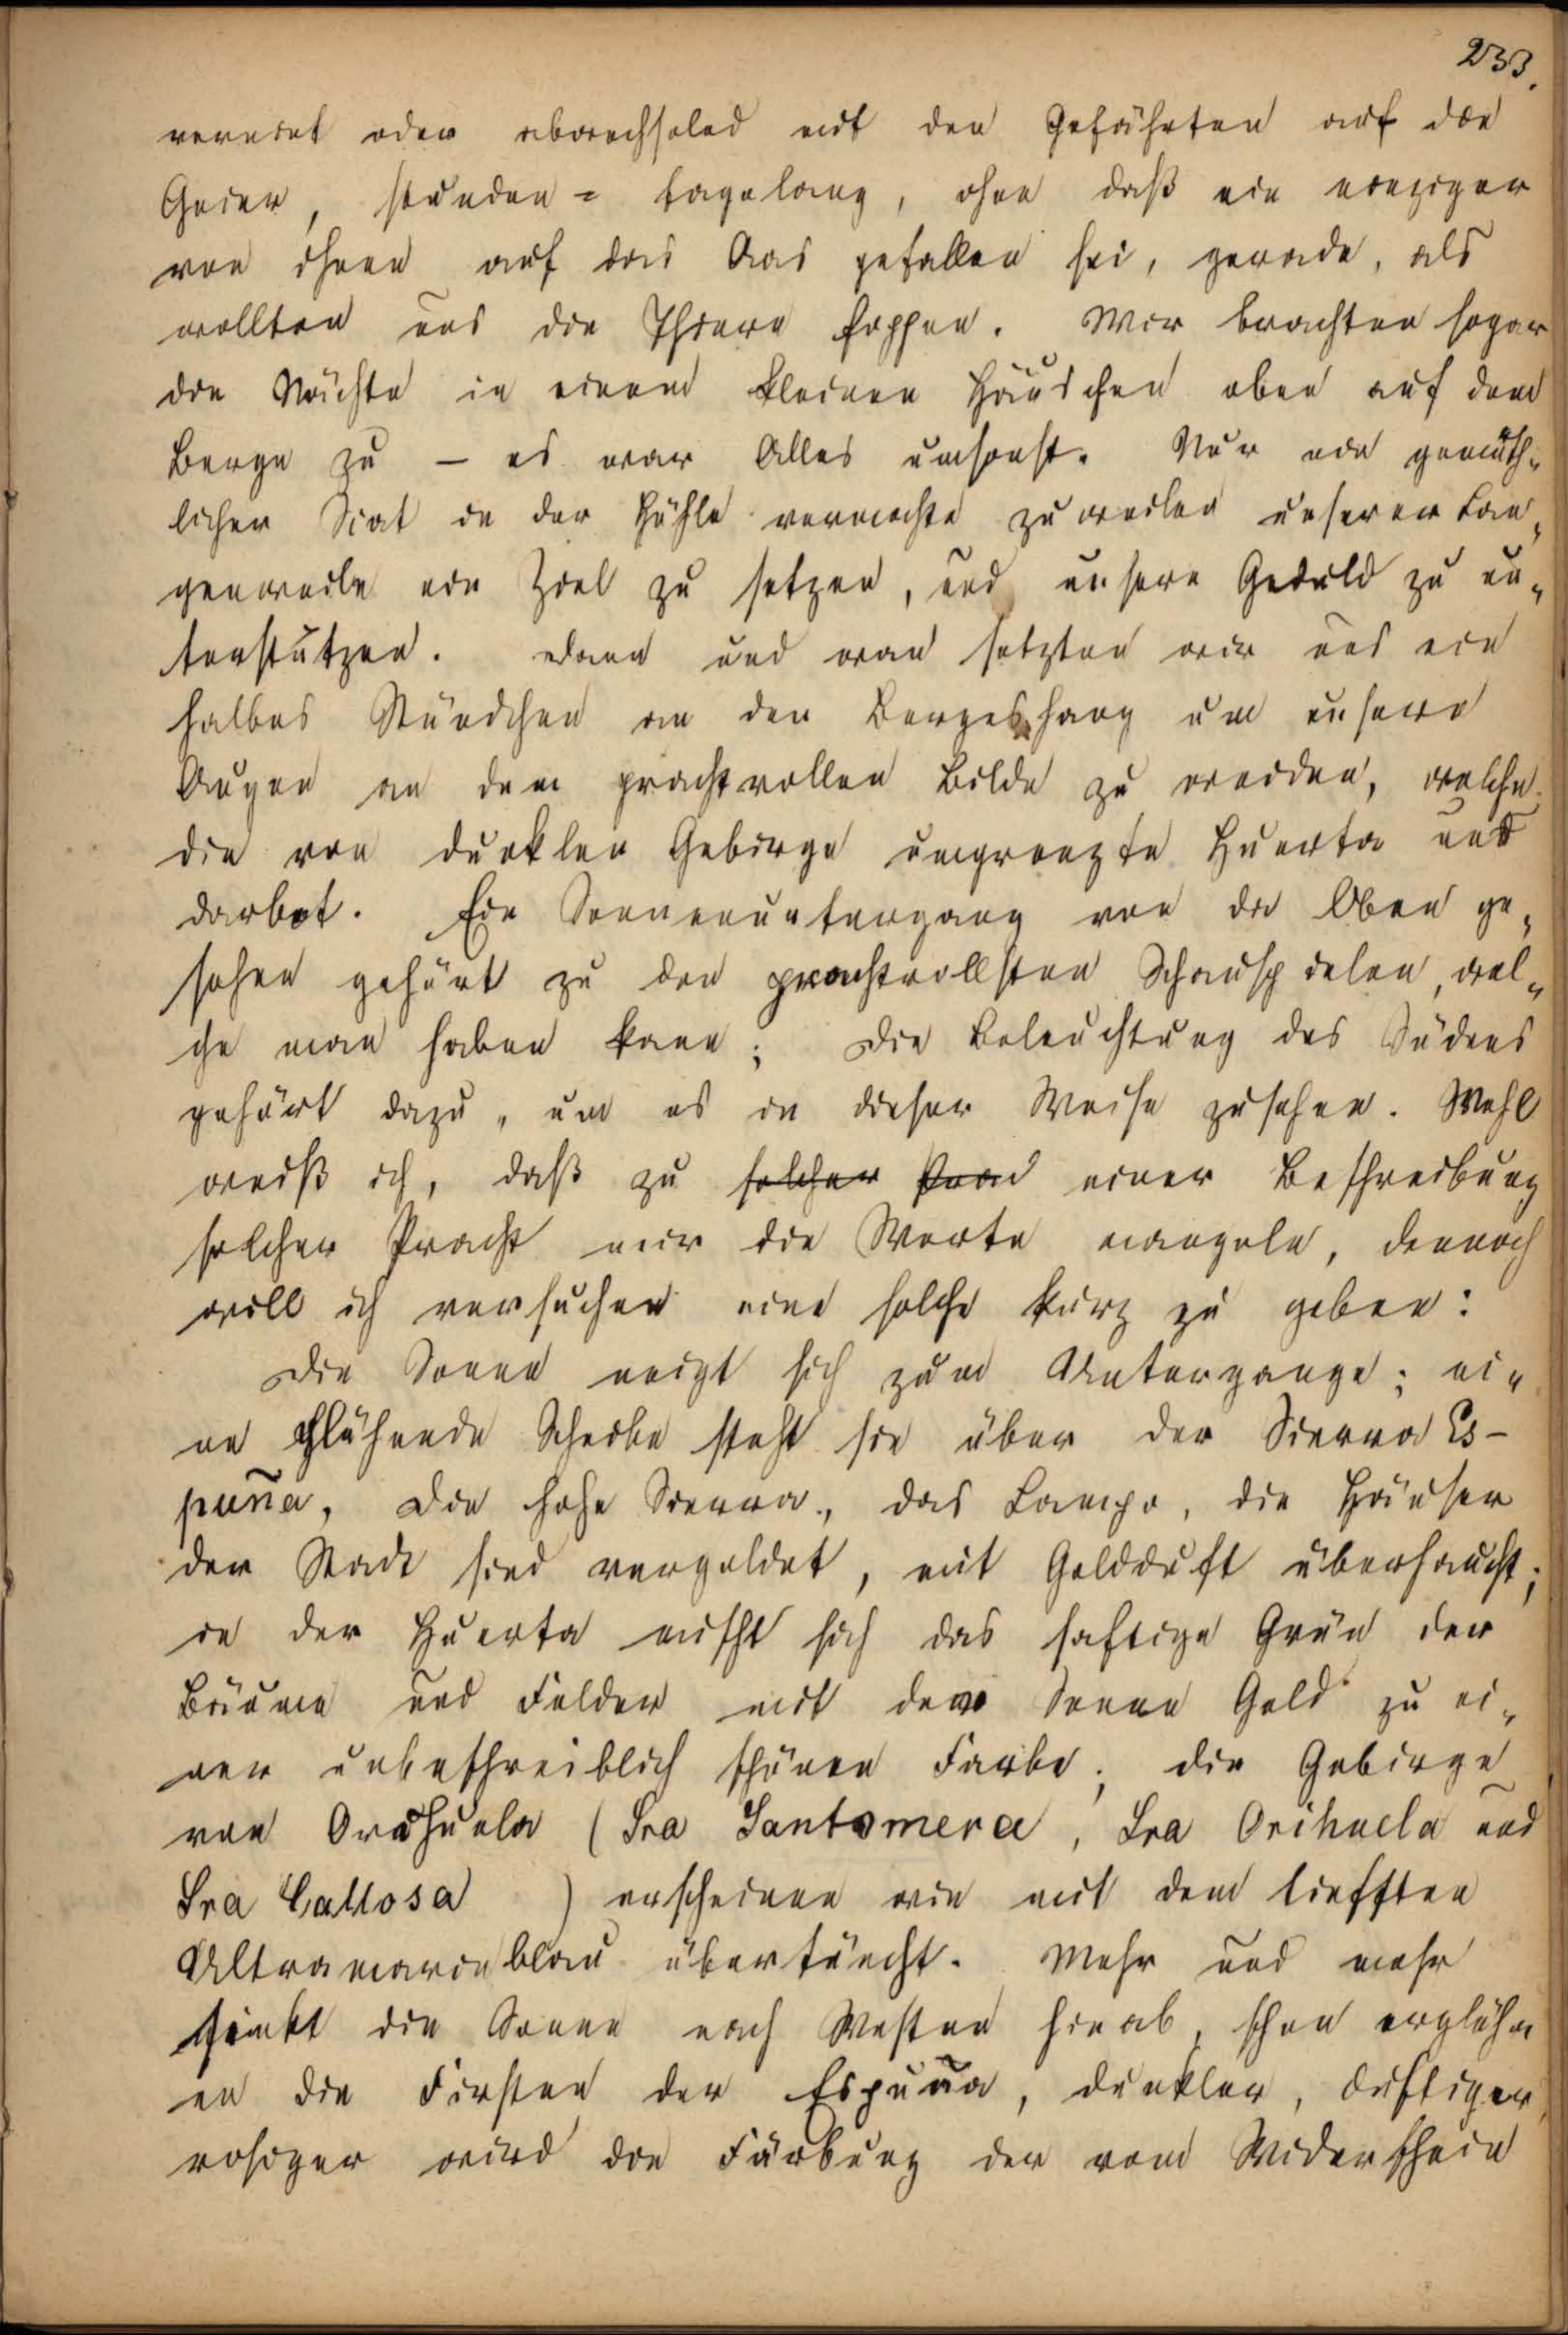 233.
vereint oder abwechselnd mit den Gefährten auf die
Geier, stunden = tagelang, ohne daß ein einziger
von ihnen auf das Aas gefallen sei, gerade, als
wollten uns die Thiere foppen. Wir brachten sogar
die Nächte in einem kleinen Häuschen oben auf dem
Berge zu – es war Alles umsonst. Nur ein gemüth„
licher Scat in der Höhle vermochte zuweilen unserer Lan„
genweile ein Ziel zu setzen, und unsere Geduld zu un„
terstützen. Dann und wan setzten wir uns ein
halbes Stündchen an den Bergeshang um unsere
Augen an dem prachtvollen Bilde zu weiden, welche
die von dunklen Gebirge umgrenzte Huerta uns
darbot. Ein Sonnenuntergang von da Oben ge„
sehen gehört zu den prachtvollsten Schauspielen, wel„
che man haben kann; die Beleuchtung des Südens
gehört dazu, um es in dieser Weise zusehen. Wohl
weiß ich, daß zu solcher einer Beschreibung
solcher Pracht mir die Worte mangeln, dennoch
will ich versuchen eine solche kurz zu geben:
Die Sonne neigt sich zum Untergange; ei„
ne glühende Scheibe steht sie über der Sierra Es-
puña, Die hohe Sierra, das Campo, die Häuser
der Stadt sind vergoldet, mit Goldduft überhaucht;
in der Huerta mischt sich das saftige Grün der
Bäume und Felder mit dem Sonne Gold zu ei„
ner unbeschreiblich schönen Farbe; die Gebirge
von Orihuela (Sra Santomera, Sra Orihuela und
Sra Callosa ) erscheinen wie mit dem tiefsten
Ultramarinblau übertüncht. Mehr und mehr
sinkt die Sonne nach Westen hinab, schon erglühn
en die Firsten der Espuña, dunkler, duftiger,
rosiger wird die Färbung der vom Widerschein